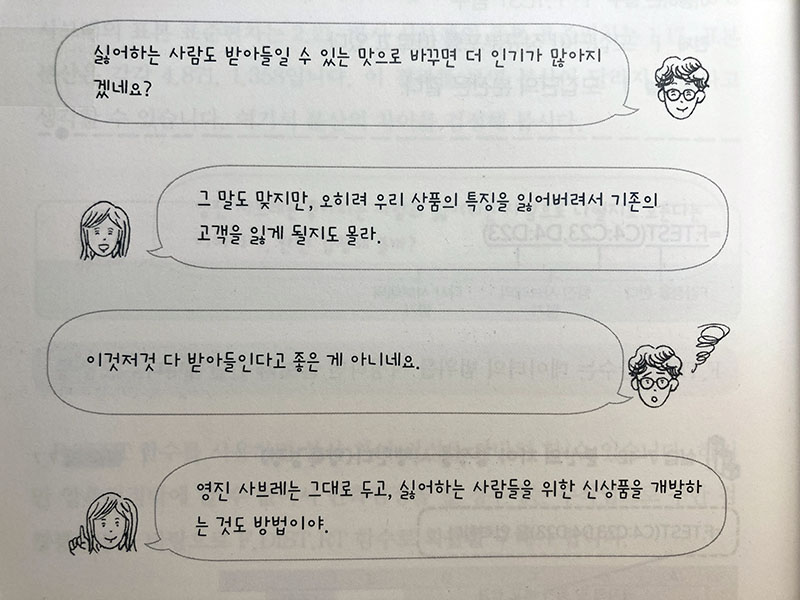 싫어하는 사람도 받아들일 수 있는 맛으로 바꾸면 더 인기가 많아지
겠네요?
그 말도 맞지만, 오히려 우리 상품의 특징을 잃어버려서 기존의
고객을 잃게 될지도 몰라.
이것저것 다 받아들인다고 좋은 게 아니네요.
영진 사브레는 그대로 두고, 싫어하는 사람들을 위한 신상품을 개발하
는 것도 방법이야.